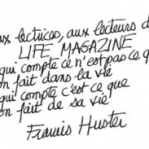 aux lectrices, aux lecteurs d
LIFE MAGAZINE
qui compte ce n'est pas ce q
on fait dans la vie
qui compte c'est ce que
on fait de sa vie!
Francis Huster